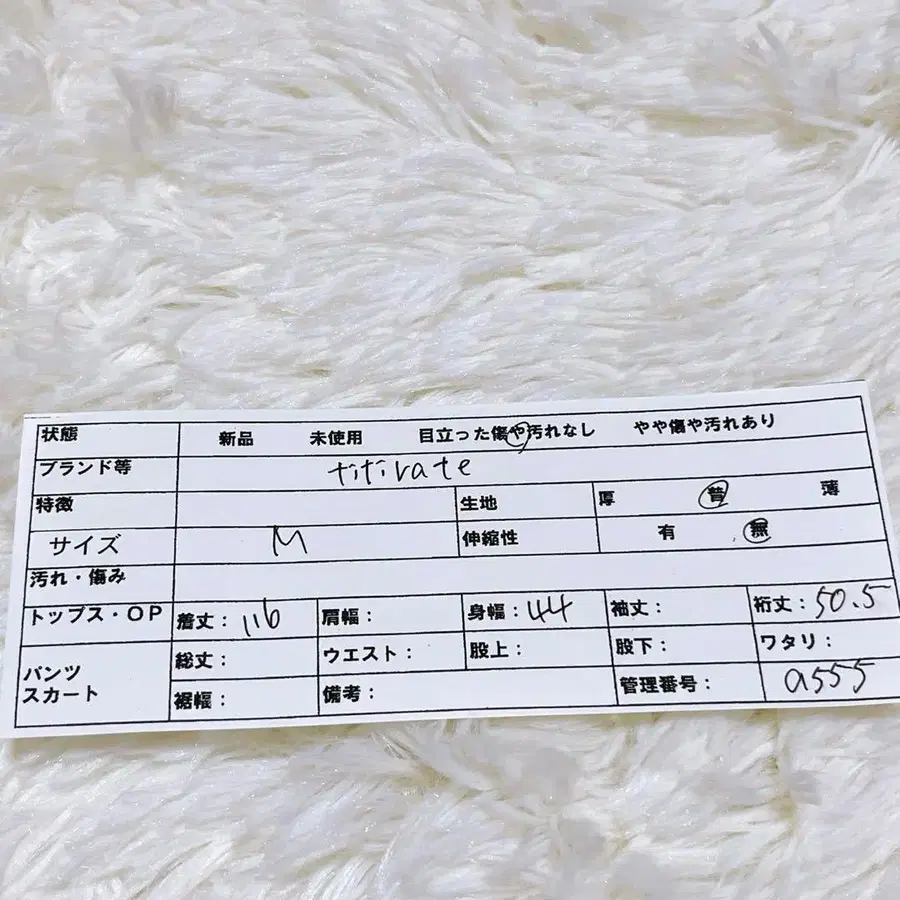 状態 新品 未使用 目立った傷や汚れなし やや傷や汚れあり
ブランド等 titivate
特徴 生地 厚 普 薄
サイズ M 伸縮性 有 無
汚れ・傷み
トップス・OP 着丈：116 肩幅： 身幅：44 袖丈： 裄丈：50.5
パンツ スカート 総丈： ウエスト： 股上： 股下： ワタリ：
裾幅： 備考： 管理番号： a555